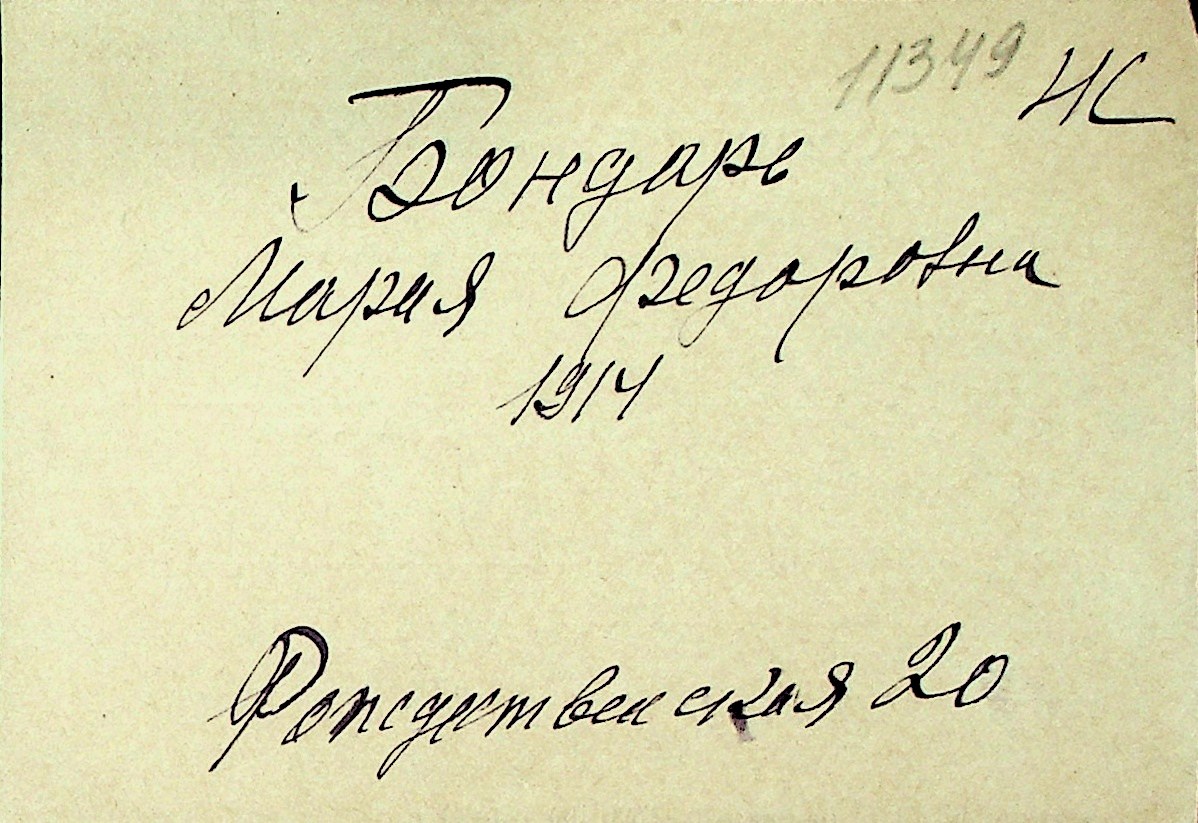 11349 НС
Бондарь
Мария Федоровна
1914
Рождественская 20